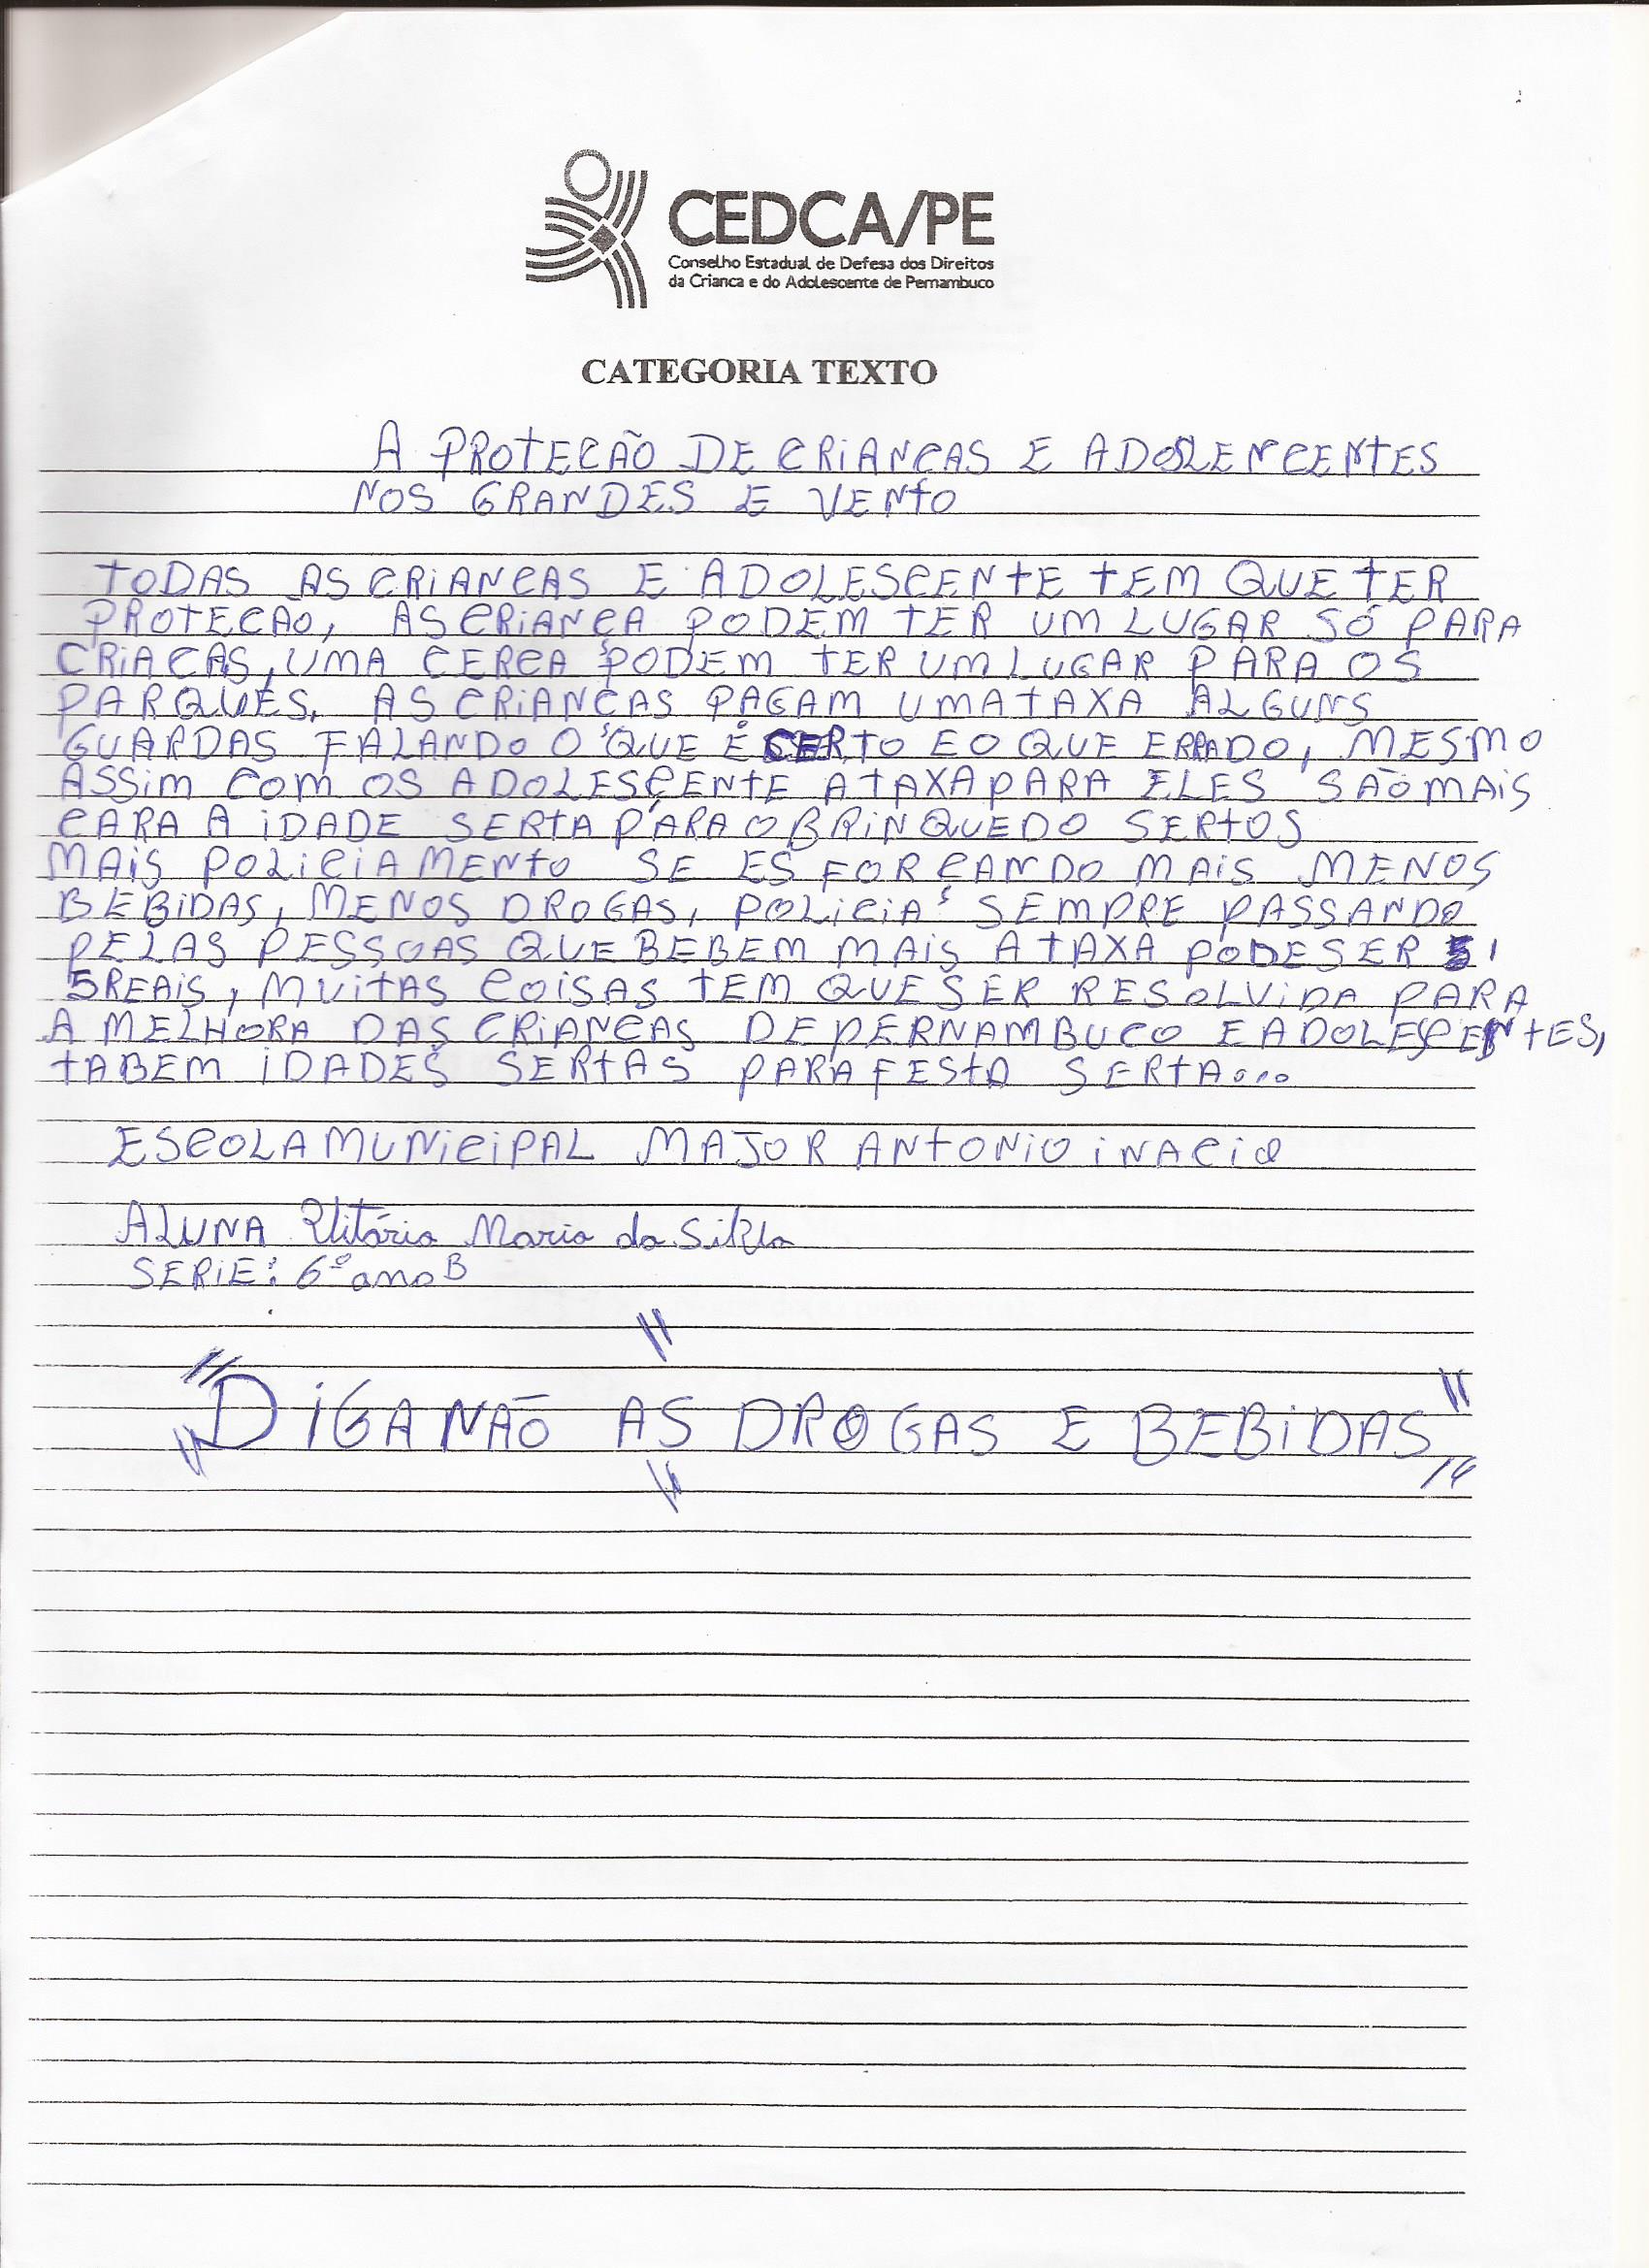 CEDCA/PE
Conselho Estadual de Defesa dos Direitos
da Crianca e do Adolescente de Pernambuco
CATEGORIA TEXTO
A PROTECÃO DE CRIANCAS E ADOSLENCENTES
NOS GRANDES E VENTO
TODAS AS CRIANCAS E ADOLESCENTE TEM QUE TER
PROTECAO, AS CRIANÇA PODEM TER UM LUGAR SÓ PARA
CRIACAS, UMA CERCA PODEM TER UM LUGAR PARA OS
PARQUES. AS CRIANCAS PAGAM UMA TAXA ALGUNS
GUARDAS FALANDO O QUE É CERTO E O QUE ERRADO, MESMO
ASSIM COM OS ADOLESCENTE A TAXA PARA ELES SAÕ MAIS
CARA A IDADE SERTA PARA O BRINQUEDO SERTOS
MAIS POLICIAMENTO SE ESFORÇANDO MAIS MENOS
BEBIDAS, MENOS DROGAS, POLICIAS SEMPRE PASSANDO
PELAS PESSOAS QUE BEBEM MAIS A TAXA PODE SER
5 REAIS, MUITAS COISAS TEM QUE SER RESOLVIDA PARA
A MELHORA DAS CRIANCAS DE PERNAMBUCO E ADOLESCENTES,
TABEM IDADES SERTAS PARA FESTA SERTA...
ESCOLA MUNICIPAL MAJOR ANTONIO INACIO
ALUNA Vitária Maria da Silva
SERIE: 6º ano B
"DIGA NÃO AS DROGAS E BEBIDAS"